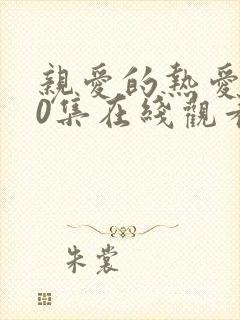 親愛的熱愛
0集在綫觀看
朱裳